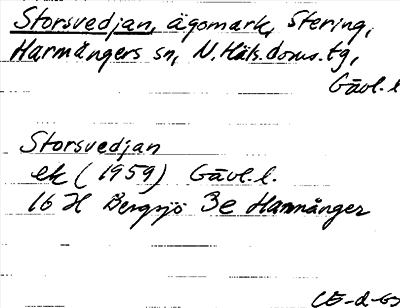 Storsvedjan, ägomark, Stering,
Harmångers sn, N. Häls. doms. tg,
Gävl. l
Storsvedjan
ek (1959) Gävl. l.
16 H Bergsjö 3e Harmånger